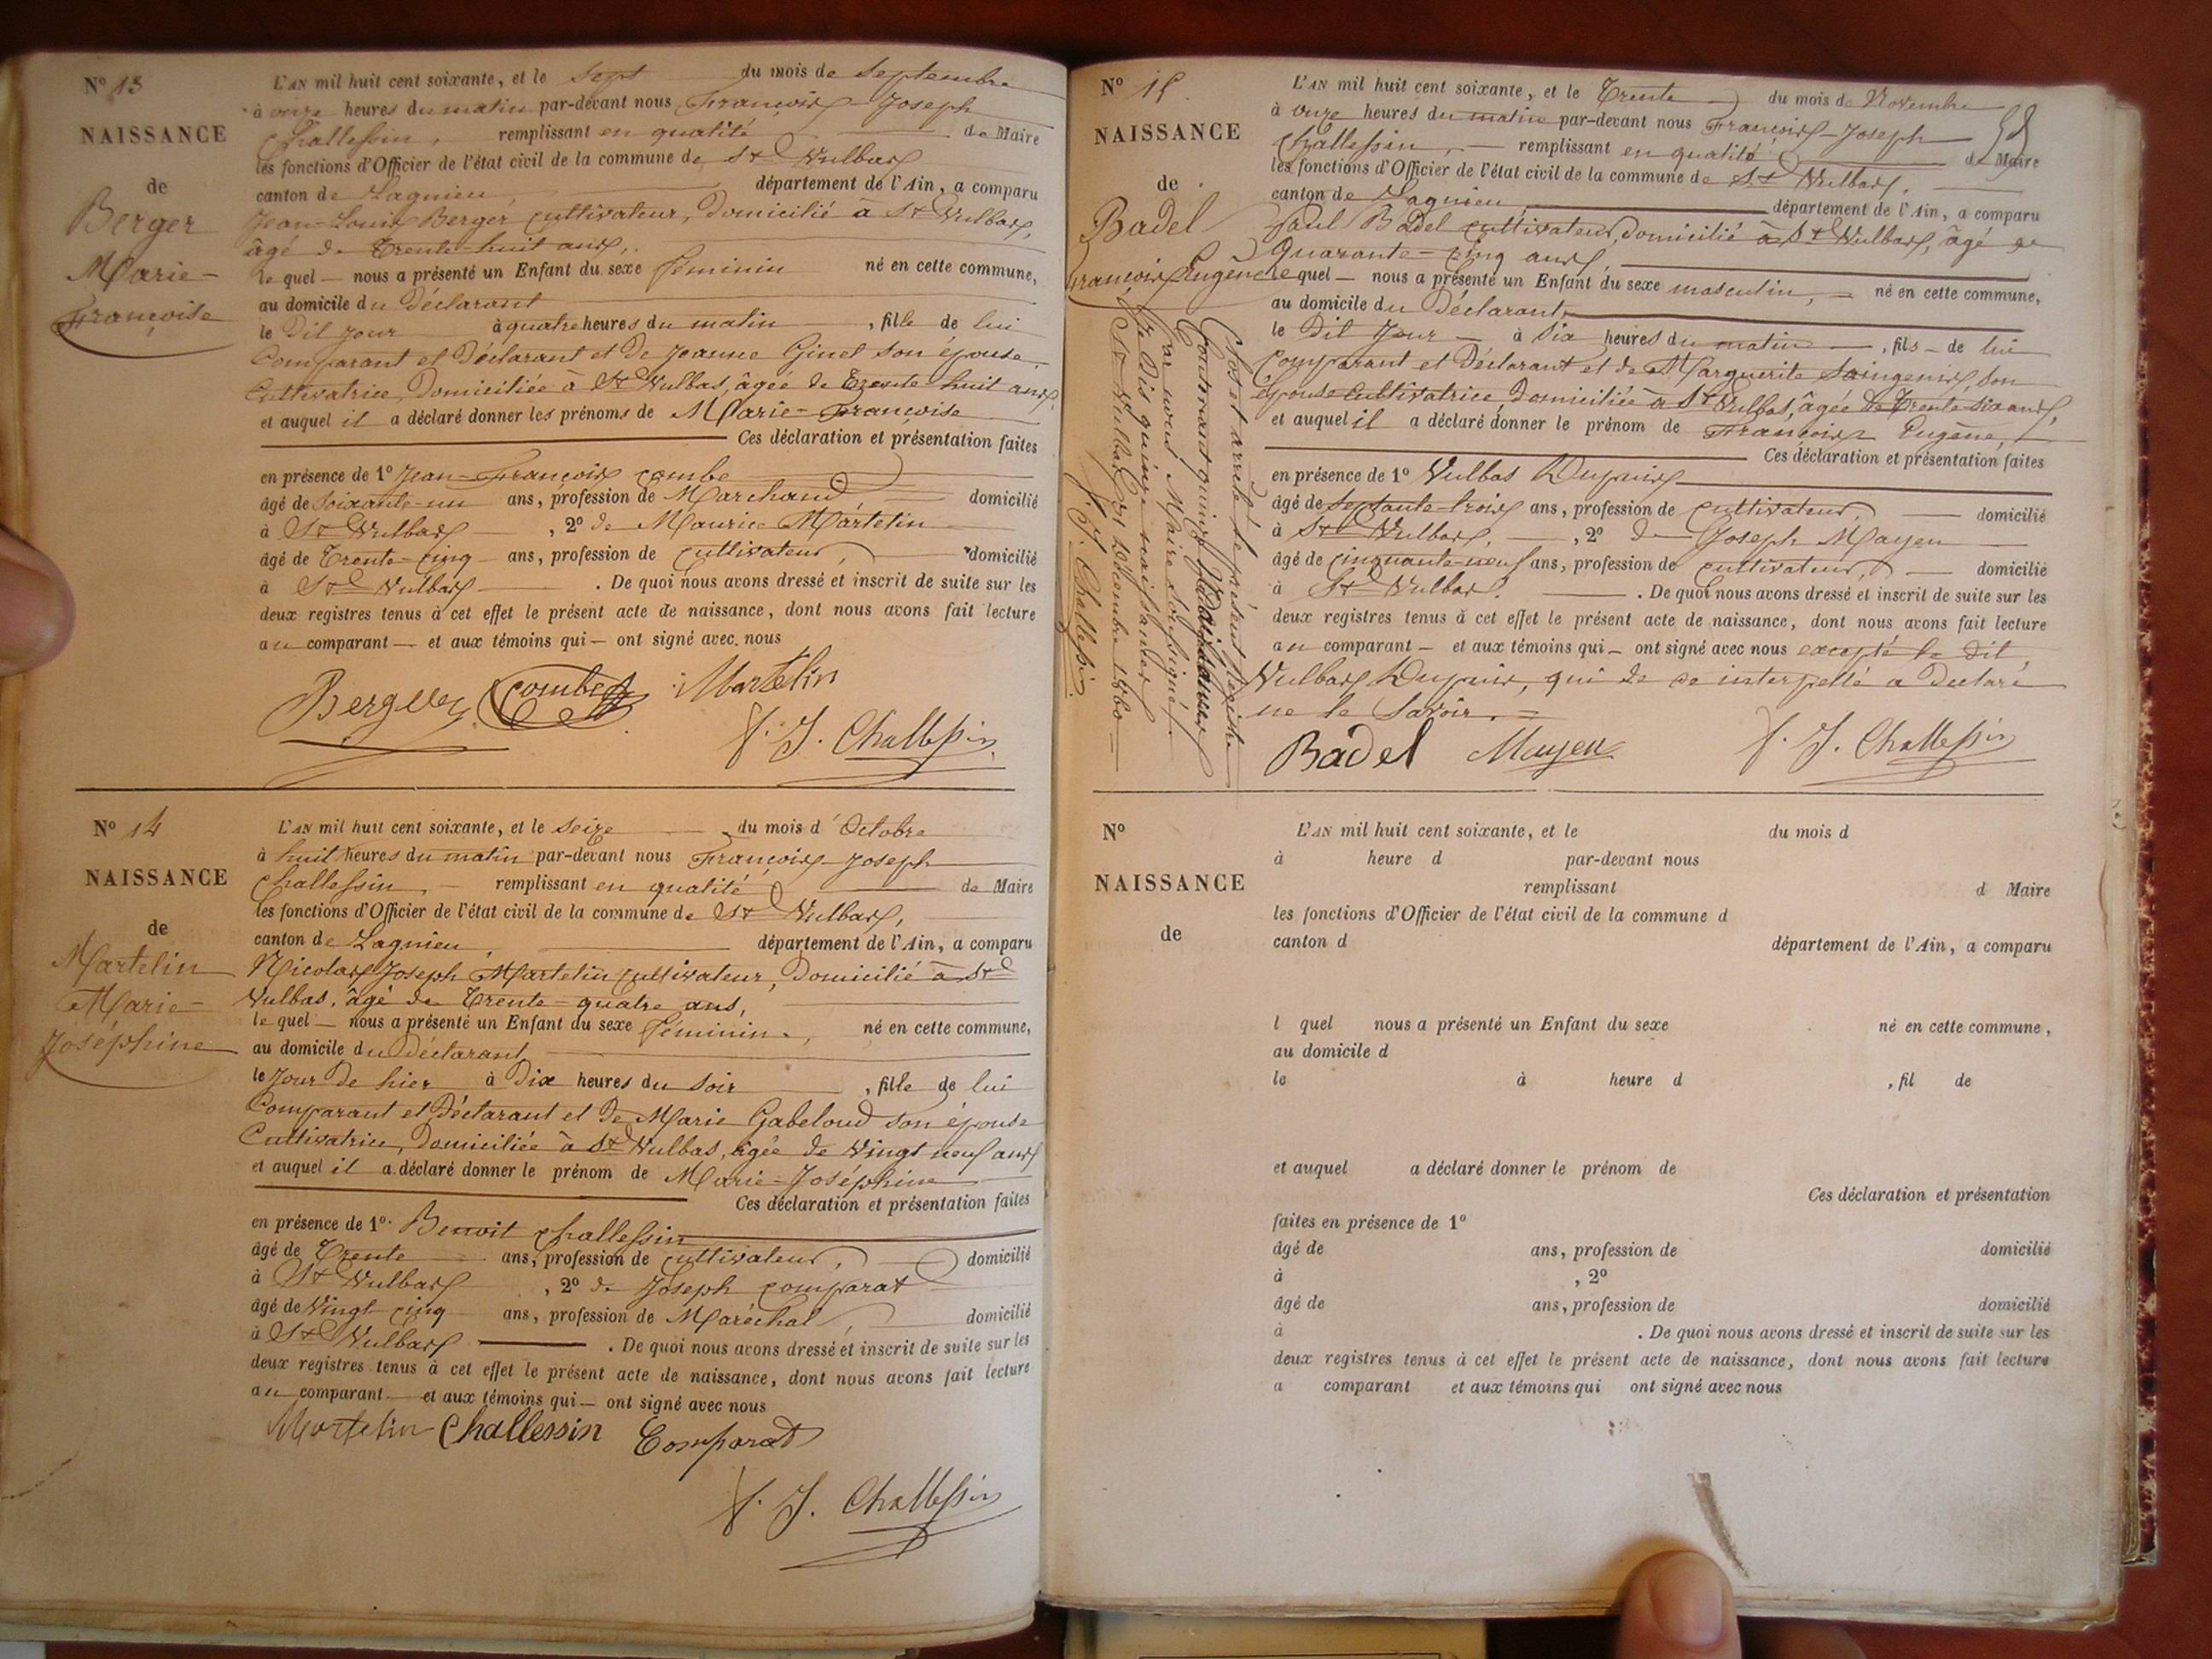 N° 13
NAISSANCE
de
Berger
Marie-
Françoise
L'AN mil huit cent soixante, et le sept du mois de Septembre
à onze heures du matin par-devant nous François-Joseph
Challessin, remplissant en qualité de Maire
les fonctions d'Officier de l'état civil de la commune de St Vulbas
canton de Lagnieu, département de l'Ain, a comparu
Jean-Louis Berger cultivateur, Domicilié à St Vulbas,
âgé de Trente-huit ans,
le quel nous a présenté un Enfant du sexe féminin né en cette commune,
au domicile du Déclarant
le Dit jour à quatre heures du matin, fille de lui
Comparant et Déclarant et de Jeanne Ginet son épouse
Cultivatrice, Domiciliée à St Vulbas, âgée de Trente-huit ans,
et auquel il a déclaré donner les prénoms de Marie-Françoise
Ces déclaration et présentation faites
en présence de 1° Jean-François Combe
âgé de soixante-un ans, profession de Marchand, domicilié
à St Vulbas, 2° de Maurice Martelin
âgé de Trente-cinq ans, profession de Cultivateur, domicilié
à St Vulbas. De quoi nous avons dressé et inscrit de suite sur les
deux registres tenus à cet effet le présent acte de naissance, dont nous avons fait lecture
au comparant et aux témoins qui ont signé avec nous
Berger Combe Martelin
F. J. Challessin
N° 14
NAISSANCE
de
Martelin
Marie-
Joséphine
L'AN mil huit cent soixante, et le seize du mois d'Octobre
à huit heures du matin par-devant nous François-Joseph
Challessin, remplissant en qualité de Maire
les fonctions d'Officier de l'état civil de la commune de St Vulbas,
canton de Lagnieu, département de l'Ain, a comparu
Nicolas Joseph Martelin cultivateur, Domicilié à St
Vulbas, âgé de Trente-quatre ans,
le quel nous a présenté un Enfant du sexe féminin, né en cette commune,
au domicile du Déclarant
le jour de hier à Dix heures du soir, fille de lui
Comparant et Déclarant et de Marie Gabeloud son épouse
Cultivatrice, Domiciliée à St Vulbas, âgée de Vingt neuf ans
et auquel il a déclaré donner le prénom de Marie-Joséphine
Ces déclaration et présentation faites
en présence de 1° Benoit Challessin
âgé de Trente ans, profession de cultivateur, domicilié
à St Vulbas, 2° de Joseph Comparat
âgé de Vingt-cinq ans, profession de Maréchal, domicilié
à St Vulbas. De quoi nous avons dressé et inscrit de suite sur les
deux registres tenus à cet effet le présent acte de naissance, dont nous avons fait lecture
au comparant et aux témoins qui ont signé avec nous
Martelin Challessin Comparat
F. J. Challessin
N° 15
NAISSANCE
de
Badel
François Eugène
L'AN mil huit cent soixante, et le Trente du mois de Novembre
à onze heures du matin par-devant nous François-Joseph
Challessin, remplissant en qualité de Maire
les fonctions d'Officier de l'état civil de la commune de St Vulbas,
canton de Lagnieu département de l'Ain, a comparu
Paul Badel cultivateur, Domicilié à St Vulbas, âgé de
Quarante-cinq ans
le quel nous a présenté un Enfant du sexe masculin, né en cette commune,
au domicile du Déclarant,
le Dit jour à Six heures du matin, fils de lui
Comparant et Déclarant et de Marguerite Saingenis, son
épouse Cultivatrice Domiciliée à St Vulbas, âgée de Trente six ans,
et auquel il a déclaré donner le prénom de François Eugène,
Ces déclaration et présentation faites
en présence de 1° Vulbas Dupuis
âgé de septante-trois ans, profession de cultivateur, domicilié
à St Vulbas, 2° de Joseph Mayen
âgé de cinquante-neuf ans, profession de cultivateur, domicilié
à St Vulbas. De quoi nous avons dressé et inscrit de suite sur les
deux registres tenus à cet effet le présent acte de naissance, dont nous avons fait lecture
au comparant et aux témoins qui ont signé avec nous excepté le dit
Vulbas Dupuis, qui de ce interpellé a Déclaré
ne le Savoir.
Badel Mayen F. J. Challessin
Clos et arrêté le présent Registre
Contenant quinze Naissances
par nous Maire soussigné,
St Vulbas le 31 Décembre 1860
F. J. Challessin
N°
NAISSANCE
de
L'AN mil huit cent soixante, et le du mois d
à heure d par-devant nous
remplissant d Maire
les fonctions d'Officier de l'état civil de la commune d
canton d département de l'Ain, a comparu
l quel nous a présenté un Enfant du sexe né en cette commune,
au domicile d
le à heure d, fil de
et auquel a déclaré donner le prénom de
Ces déclaration et présentation
faites en présence de 1°
âgé de ans, profession de domicilié
à , 2°
âgé de ans, profession de domicilié
à . De quoi nous avons dressé et inscrit de suite sur les
deux registres tenus à cet effet le présent acte de naissance, dont nous avons fait lecture
a comparant et aux témoins qui ont signé avec nous